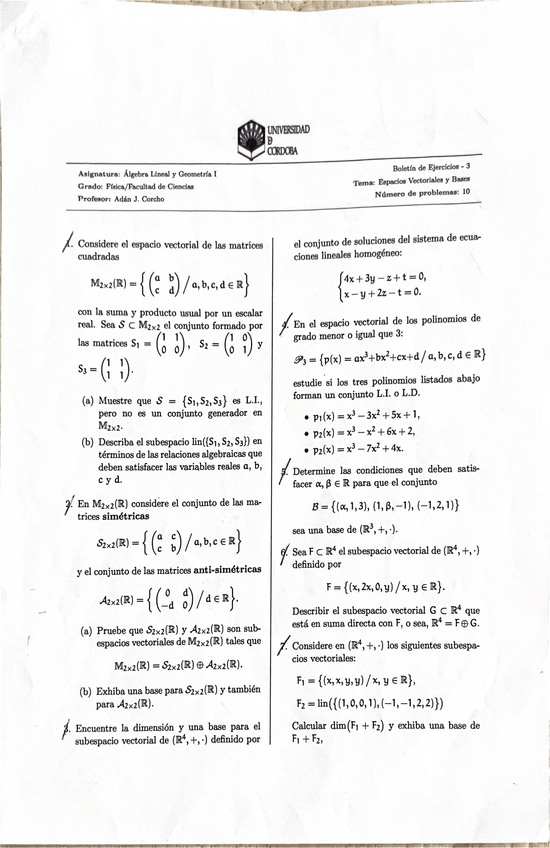 UNIVERSIDAD
D
CORDOBA
Asignatura: Álgebra Lineal y Geometría I
Grado: Física/Facultad de Ciencias
Profesor: Adán J. Corcho
Boletín de Ejercicios - 3
Tema: Espacios Vectoriales y Bases
Número de problemas: 10
1. Considere el espacio vectorial de las matrices
cuadradas
M₂ₓ₂(ℝ) = { (a b; c d) / a, b, c, d ∈ ℝ }
con la suma y producto usual por un escalar
real. Sea S ⊂ M₂ₓ₂ el conjunto formado por
las matrices S₁ = (1 1; 0 0), S₂ = (1 0; 0 1) y
S₃ = (1 1; 1 1).
(a) Muestre que S = {S₁, S₂, S₃} es L.I.,
pero no es un conjunto generador en
M₂ₓ₂.
(b) Describa el subespacio lin({S₁, S₂, S₃}) en
términos de las relaciones algebraicas que
deben satisfacer las variables reales a, b,
c y d.
2. En M₂ₓ₂(ℝ) considere el conjunto de las ma-
trices simétricas
S₂ₓ₂(ℝ) = { (a c; c b) / a, b, c ∈ ℝ }
y el conjunto de las matrices anti-simétricas
A₂ₓ₂(ℝ) = { (0 d; −d 0) / d ∈ ℝ }.
(a) Pruebe que S₂ₓ₂(ℝ) y A₂ₓ₂(ℝ) son sub-
espacios vectoriales de M₂ₓ₂(ℝ) tales que
M₂ₓ₂(ℝ) = S₂ₓ₂(ℝ) ⊕ A₂ₓ₂(ℝ).
(b) Exhiba una base para S₂ₓ₂(ℝ) y también
para A₂ₓ₂(ℝ).
3. Encuentre la dimensión y una base para el
subespacio vectorial de (ℝ⁴, +, ·) definido por
el conjunto de soluciones del sistema de ecua-
ciones lineales homogéneo:
{ 4x + 3y − z + t = 0,
x − y + 2z − t = 0.
4. En el espacio vectorial de los polinomios de
grado menor o igual que 3:
𝒫₃ = {p(x) = ax³+bx²+cx+d / a, b, c, d ∈ ℝ}
estudie si los tres polinomios listados abajo
forman un conjunto L.I. o L.D.
• p₁(x) = x³ − 3x² + 5x + 1,
• p₂(x) = x³ − x² + 6x + 2,
• p₂(x) = x³ − 7x² + 4x.
5. Determine las condiciones que deben satis-
facer α, β ∈ ℝ para que el conjunto
B = {(α, 1, 3), (1, β, −1), (−1, 2, 1)}
sea una base de (ℝ³, +, ·).
6. Sea F ⊂ ℝ⁴ el subespacio vectorial de (ℝ⁴, +, ·)
definido por
F = {(x, 2x, 0, y) / x, y ∈ ℝ}.
Describir el subespacio vectorial G ⊂ ℝ⁴ que
está en suma directa con F, o sea, ℝ⁴ = F ⊕ G.
7. Considere en (ℝ⁴, +, ·) los siguientes subespa-
cios vectoriales:
F₁ = {(x, x, y, y) / x, y ∈ ℝ},
F₂ = lin({(1, 0, 0, 1), (−1, −1, 2, 2)})
Calcular dim(F₁ + F₂) y exhiba una base de
F₁ + F₂,